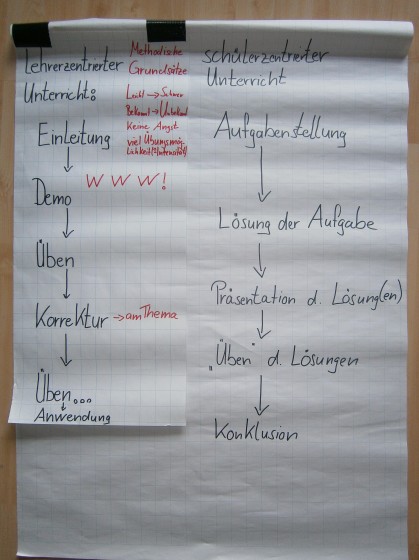 Lehrerzentrierter
Unterricht:
Methodische
Grundsätze
Leicht → Schwer
Bekannt → Unbekannt
Keine Angst
viel Übungsmög-
lichkeit (Intensität)
Einleitung
Demo
W W W !
Üben
Korrektur → am Thema
Üben...
Anwendung
schülerzentrierter
Unterricht
Aufgabenstellung
Lösung der Aufgabe
Präsentation d. Lösung(en)
„Üben" d. Lösungen
Konklusion